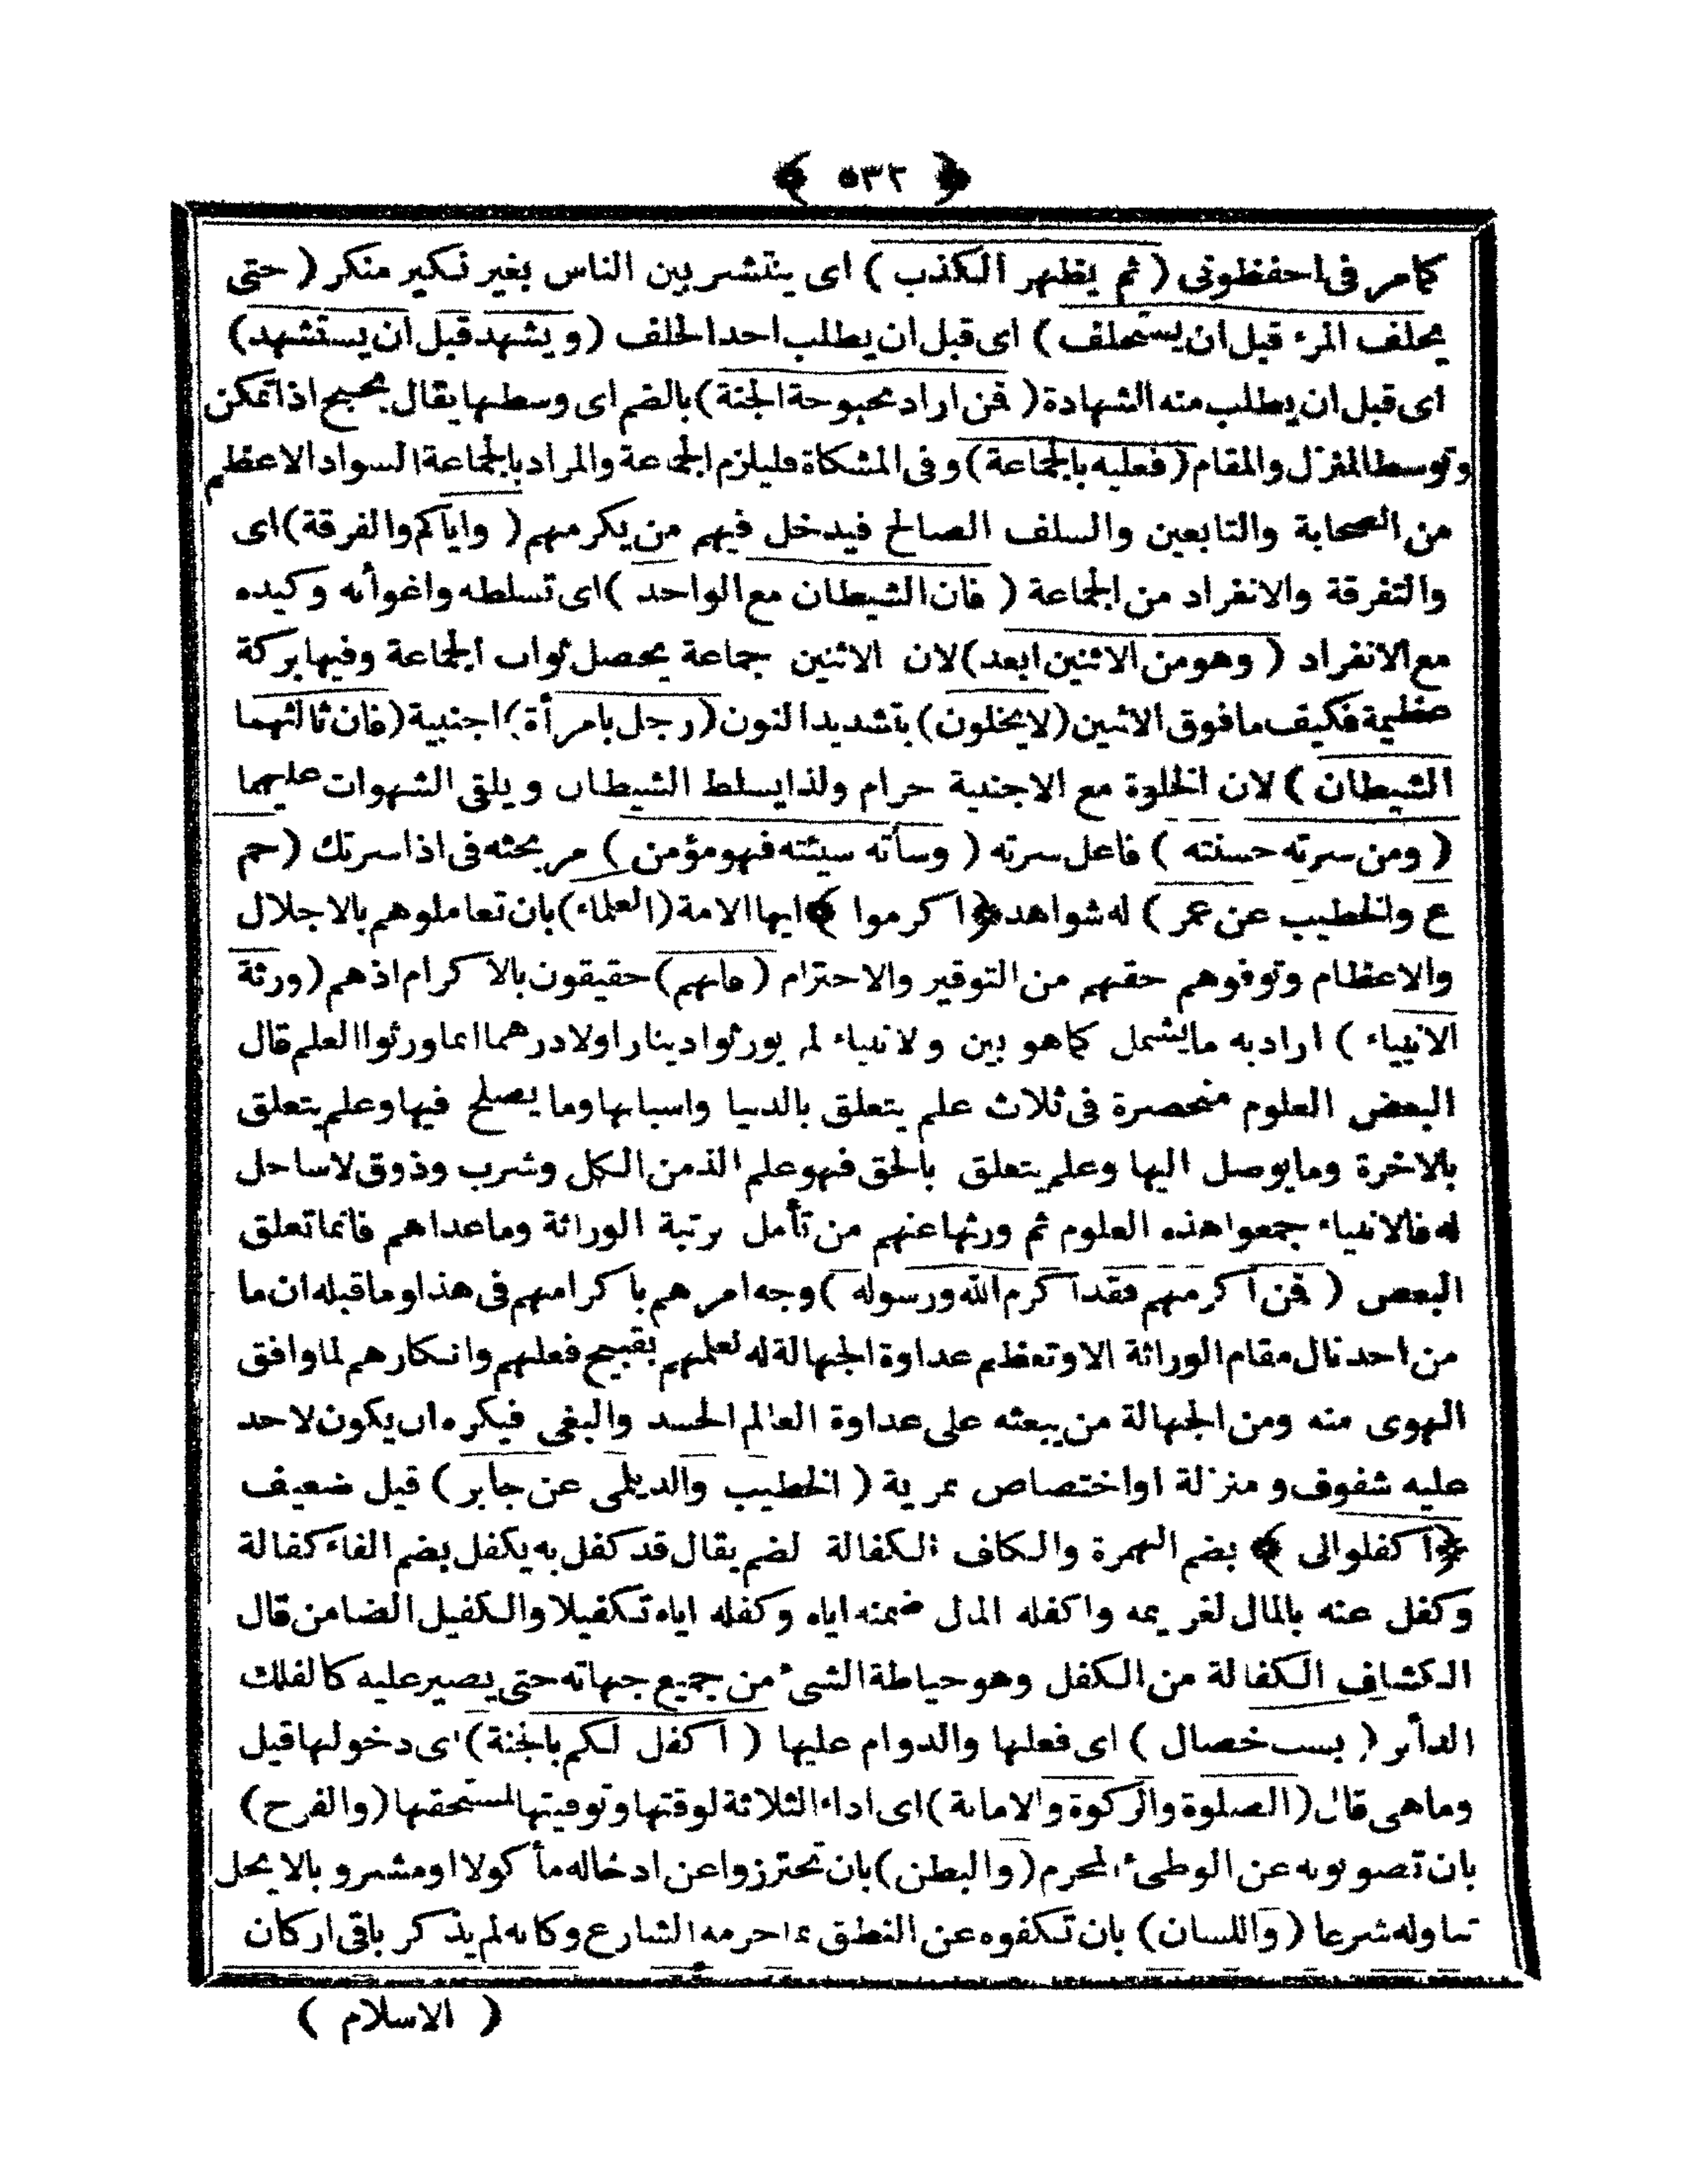 ﴿ ٥٣٢ ﴾
كمامر فى احفظونى ( ثم يظهر الكذب ) اى ينتشر بين الناس بغير نكير منكر ( حتى
يحلف المرء قبل ان يستحلف ) اى قبل ان يطلب احد الحلف ( و يشهد قبل ان يستشهد )
اى قبل ان يطلب منه الشهادة ( فمن اراد بحبوحة الجنة ) بالضم اى وسطها يقال بحبح اذا تمكن
وتوسط المنزل والمقام ( فعليه بالجماعة ) وفى المشكاة فليلزم الجماعة والمراد بالجماعة السواد الاعظم
من الصحابة والتابعين والسلف الصالح فيدخل فيهم من يكرمهم ( واياكم والفرقة ) اى
والتفرقة والانفراد من الجماعة ( فان الشيطان مع الواحد ) اى تسلطه واغوأه وكيده
مع الانفراد ( وهو من الاثنين ابعد ) لان الاثنين جماعة يحصل ثواب الجماعة وفيها بركة
عظيمة فكيف مافوق الاثنين ( لايخلون ) بتشديد النون ( رجل بامرأة ) اجنبية ( فان ثالثهما
الشيطان ) لان الخلوة مع الاجنبية حرام ولذا يسلط الشيطان و يلقى الشهوات عليهما
( ومن سرته حسنته ) فاعل سرته ( وسأته سيئته فهو مؤمن ) مر بحثه فى اذا سرتك ( حم
ع والخطيب عن عمر ) له شواهد ﴿ اكرموا ﴾ ايها الامة ( العلماء ) بان تعاملوهم بالاجلال
والاعظام وتوفوهم حقهم من التوقير والاحترام ( فانهم ) حقيقون بالاكرام اذهم ( ورثة
الانبياء ) ارادبه مايشمل كماهو بين و لانبياء لم يورثوا دينارا ولا درهما انما ورثوا العلم قال
البعض العلوم منحصرة فى ثلاث علم يتعلق بالدنيا واسبابها وما يصلح فيها وعلم يتعلق
بالاخرة ومايوصل اليها وعلم يتعلق بالحق فهو علم الذ من الكل وشرب وذوق لاساحل
له فالانبياء جمعوا هذه العلوم ثم ورثها عنهم من تأمل برتبة الوراثة وماعداهم فانما تعلق
البعض ( فمن اكرمهم فقد اكرم الله ورسوله ) وجه امرهم باكرامهم فى هذا وماقبله ان ما
من احد نال مقام الوراثة الا وتعظم عداوة الجهالة له لعلمهم بقبيح فعلهم وانكارهم لما وافق
الهوى منه ومن الجهالة من يبعثه على عداوة العالم الحسد والبغى فيكره ان يكون لاحد
عليه شفوف و منزلة اواختصاص بمرية ( الخطيب والديلمى عن جابر ) قيل ضعيف
﴿ اكفلوالى ﴾ بضم الهمزة والكاف الكفالة لضم يقال قد كفل به يكفل بضم الفاء كفالة
وكفل عنه بالمال لغريمه واكفله المال ضمنه اياه وكفله اياه تكفيلا والكفيل الضامن قال
الكشاف الكفالة من الكفل وهو حياطة الشئ من جميع جهاته حتى يصير عليه كالفلك
الدأر ( بست خصال ) اى فعلها والدوام عليها ( اكفل لكم بالجنة ) اى دخولها قيل
وماهى قال ( الصلوة والزكوة والامانة ) اى اداء الثلاثة لوقتها وتوفيتها لمستحقها ( والفرج )
بان تصونونه عن الوطئ المحرم ( والبطن ) بان تحترزوا عن ادخاله مأكولا اومشروبا لايحل
تناوله شرعا ( واللسان ) بان تكفوه عن النطق بما حرمه الشارع وكانه لم يذكر باقى اركان
( الاسلام )